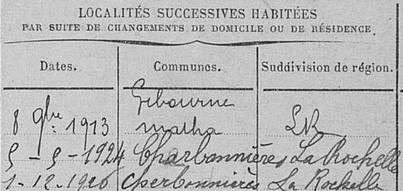 LOCALITÉS SUCCESSIVES HABITÉES
PAR SUITE DE CHANGEMENTS DE DOMICILE OU DE RÉSIDENCE.
Dates. Communes. Suddivision de région.
8 9bre 1913 matha LR
5-9-1924 Charbonnières La Rochelle
1-12-1926 La Rochelle